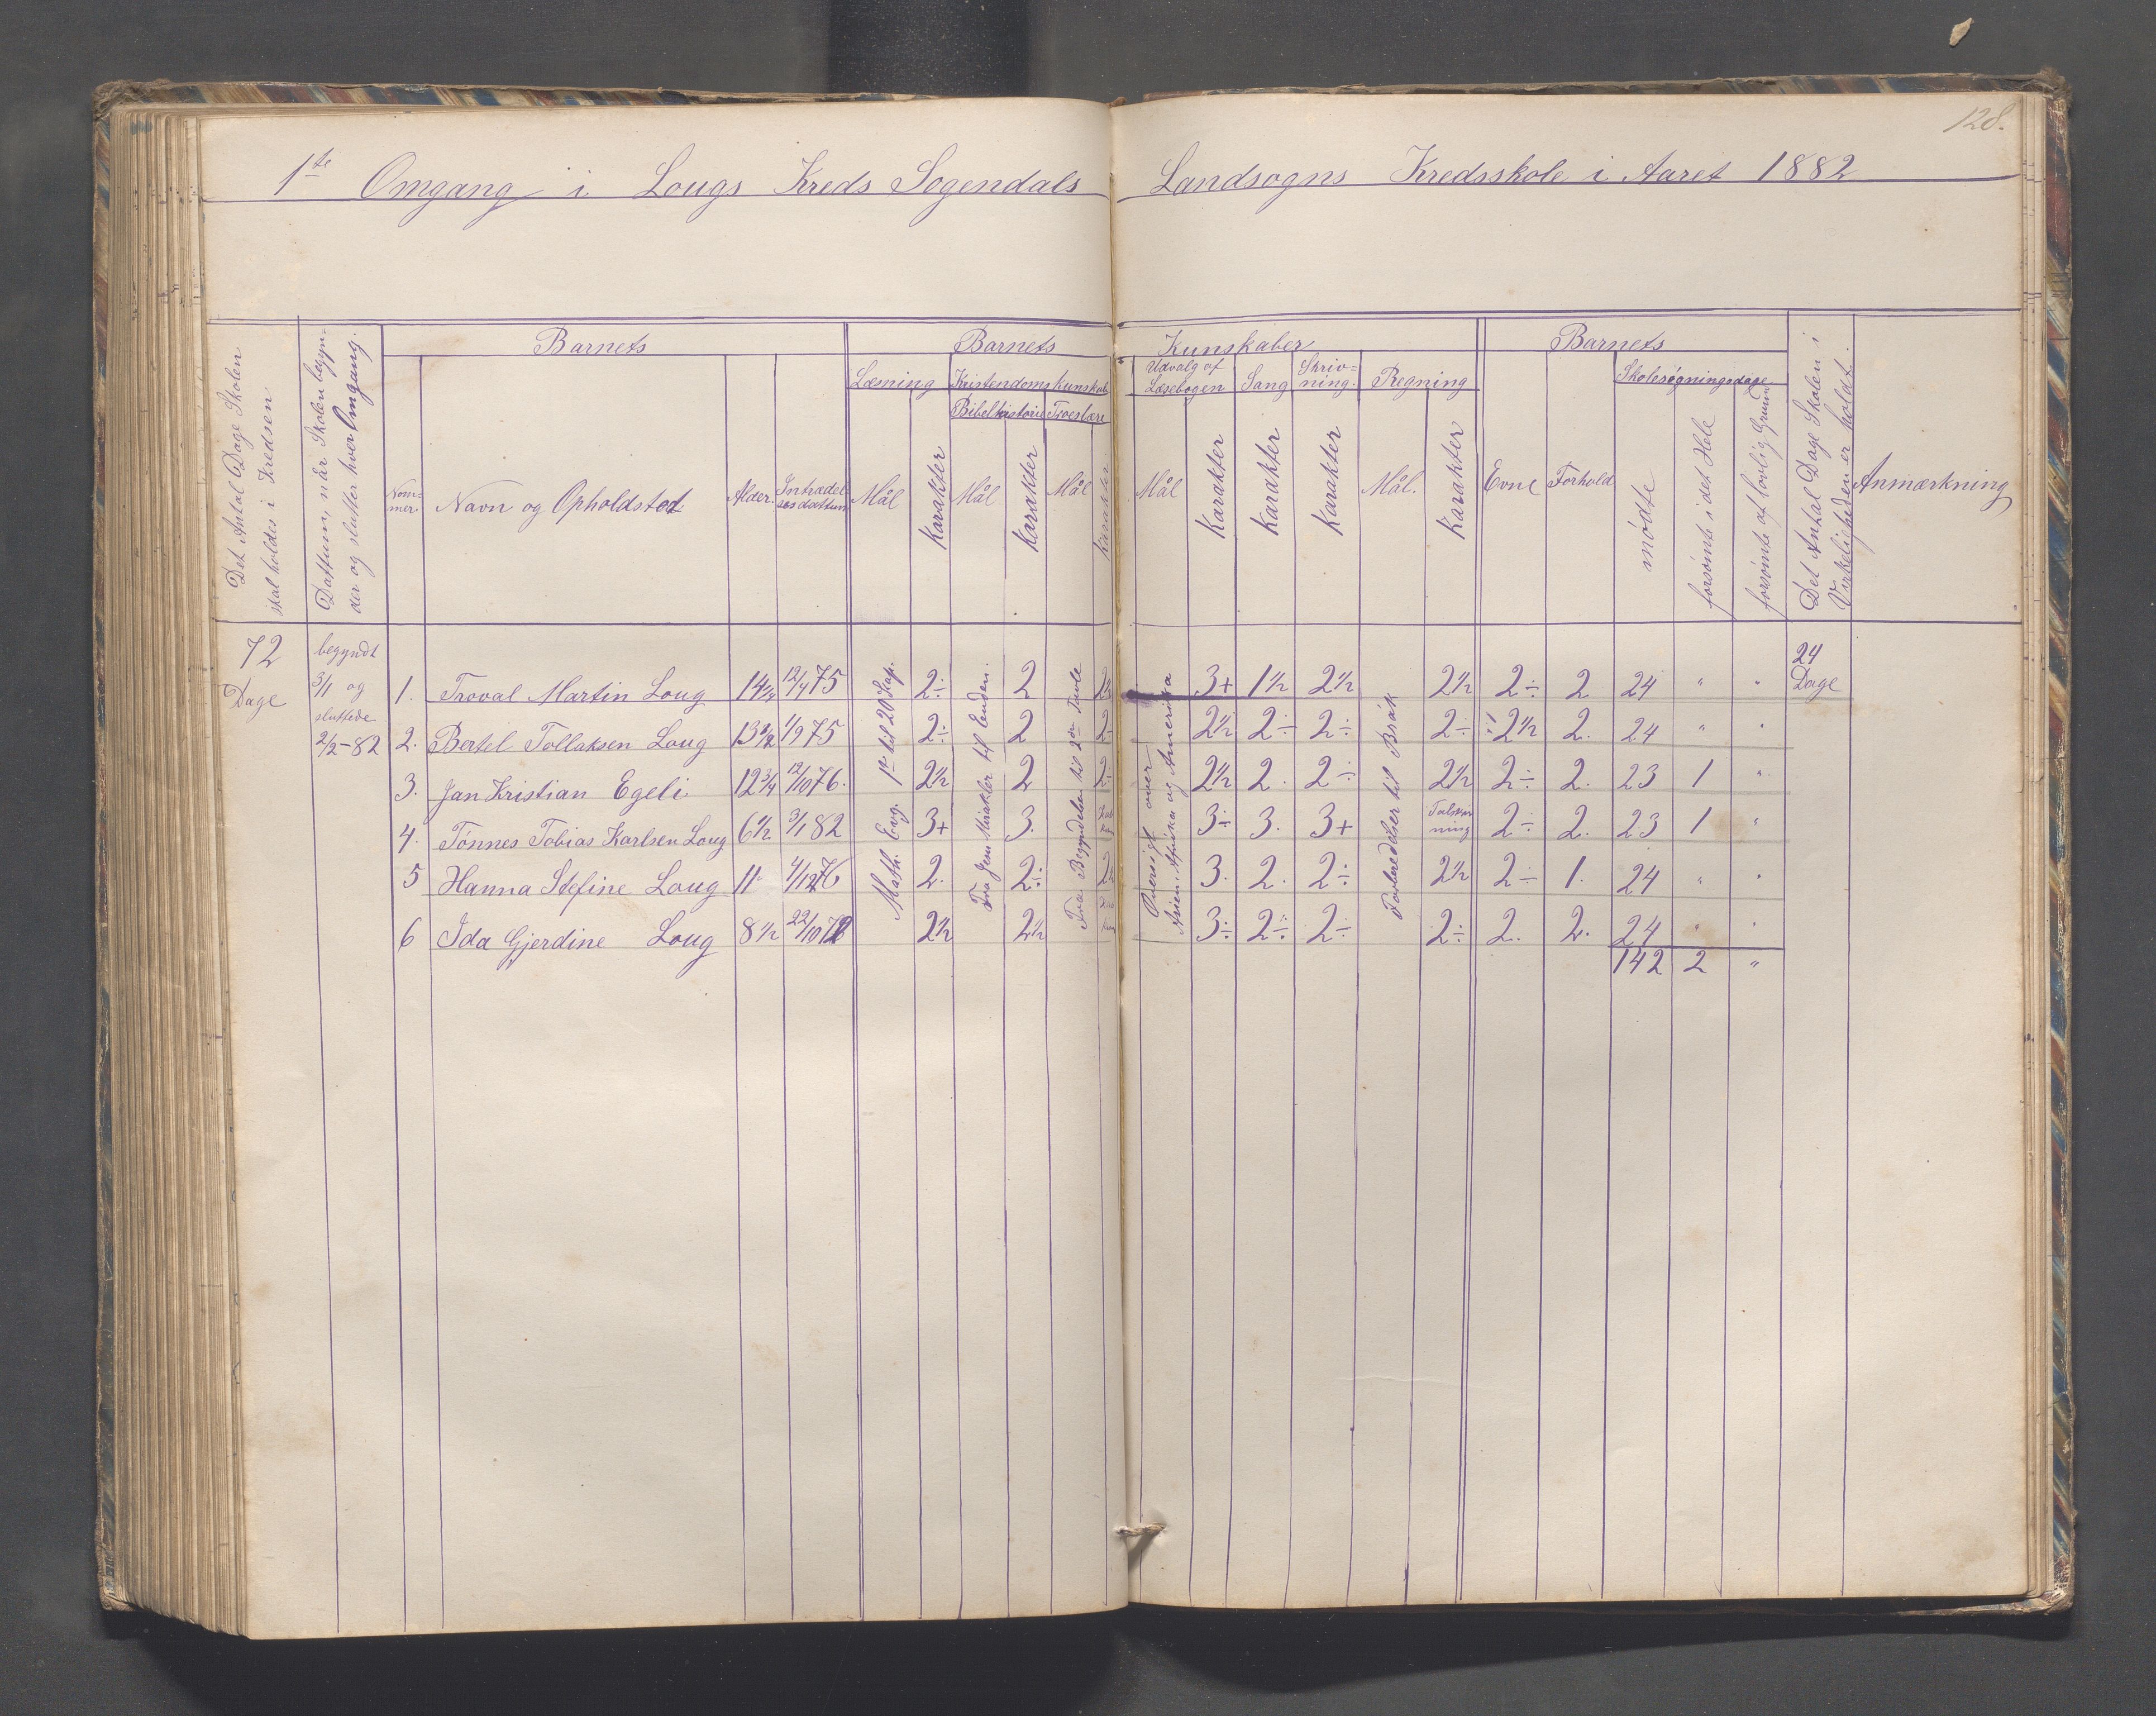 128.
1te Omgang i Lougs Kreds Sogendals Landsogns Kredsskole i Aaret 1882
Det Antal Dage Skolen skal holdes i Kredsen
Dattum, når Skolen begynder og slutter hver Omgang.
Barnets
Nommer
Navn og Opholdsted
Alder.
Intrædelsesdattum
Barnets Kunskaber
Læsning
Mål
Karakter
Kristendomskunskab
Bibelhistorie
Mål
Karakter
Troeslære
Mål
Karakter
Udvalg af Læsebogen
Mål
Karakter
Sang
Karakter
Skrivning.
Karakter
Regning
Mål.
Karakter
Barnets
Evne
Forhold
Skolesøgningsdage
mødte
forsømte i det Hele
forsømte af lovlig Grund
Det Antal Dage Skolen i Virkeligheden er holdt.
Anmærkning
72 Dage
begyndt 3/1 og sluttede 2/2-82
Math. Evg. 1te til 20 Kap.
Fra Jesu Mirakler til Enden.
Fra Begyndelsen til 2den Tavle
Oversigt over Asien Afrika og Amerika
Forberedelser til Brøk
24 Dage
1. Troval Martin Loug 14 1/4 12/4 75 2÷ 2 3+ 1½ 2½ 2½ 2÷ 2 24 " "
2. Bertel Tollaksen Loug 13½ 1/9 75 2÷ 2 2÷ 2½ 2÷ 2÷ 2÷ 2½ 2. 24 " "
3. Jan Kristian Egeli 12¾ 12/10 76. 2½ 2 2÷ 2½ 2. 2÷ 2½ 2÷ 2. 23 1 "
4. Tónnes Tobias Karlsen Loug 6½ 3/1 82 3+ 3. 3÷ 3. 3+ 2÷ 2. 23 1 "
5 Hanna Stefine Loug 11 2. 2÷ 2½ 3. 2. 2÷ 2½ 2÷ 1. 24 " "
6 Ida Gjerdine Loug 8½ 2½ 2½ 3÷ 2÷ 2÷ 2÷ 2. 2. 24 " "
142 2 "